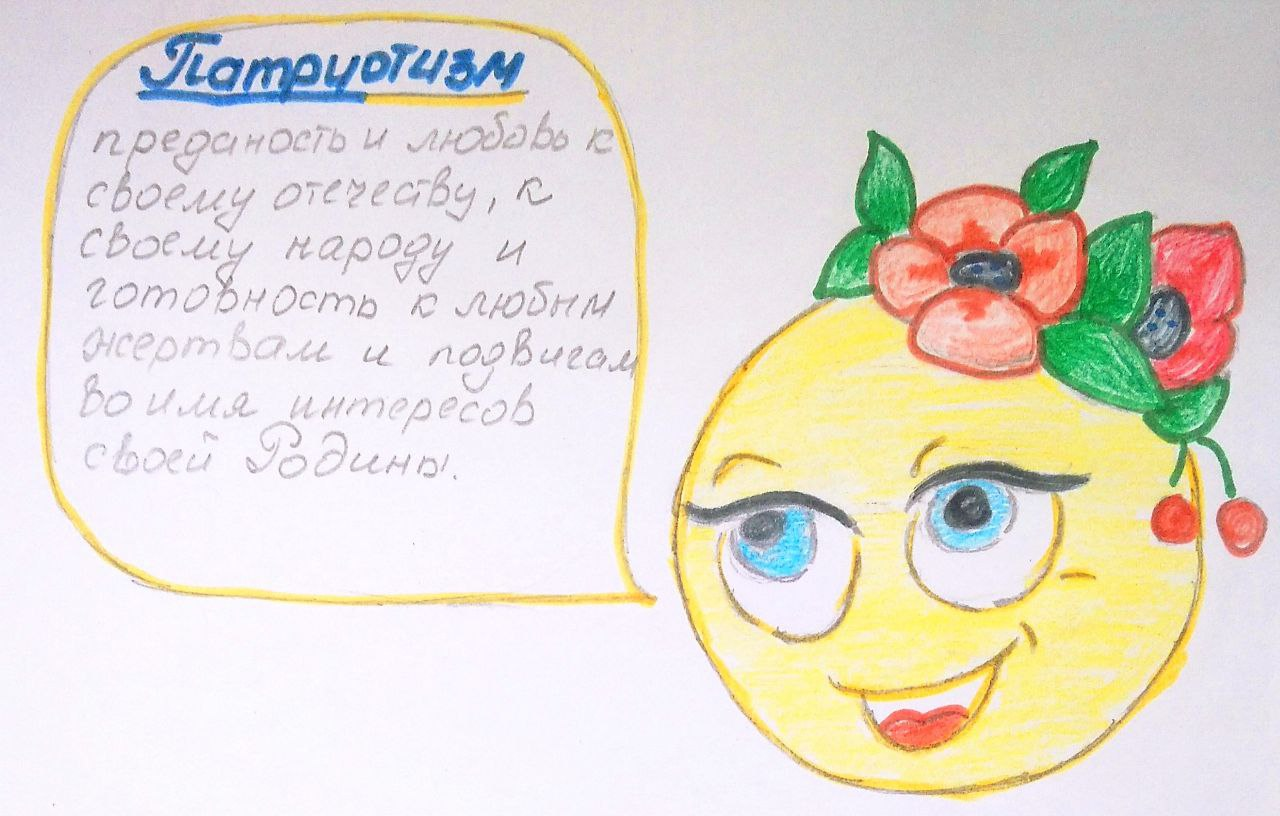 Патриотизм
преданость и любовь к
своему отечеству, к
своему народу и
готовность к любым
жертвам и подвигам
во имя интересов
своей Родины.